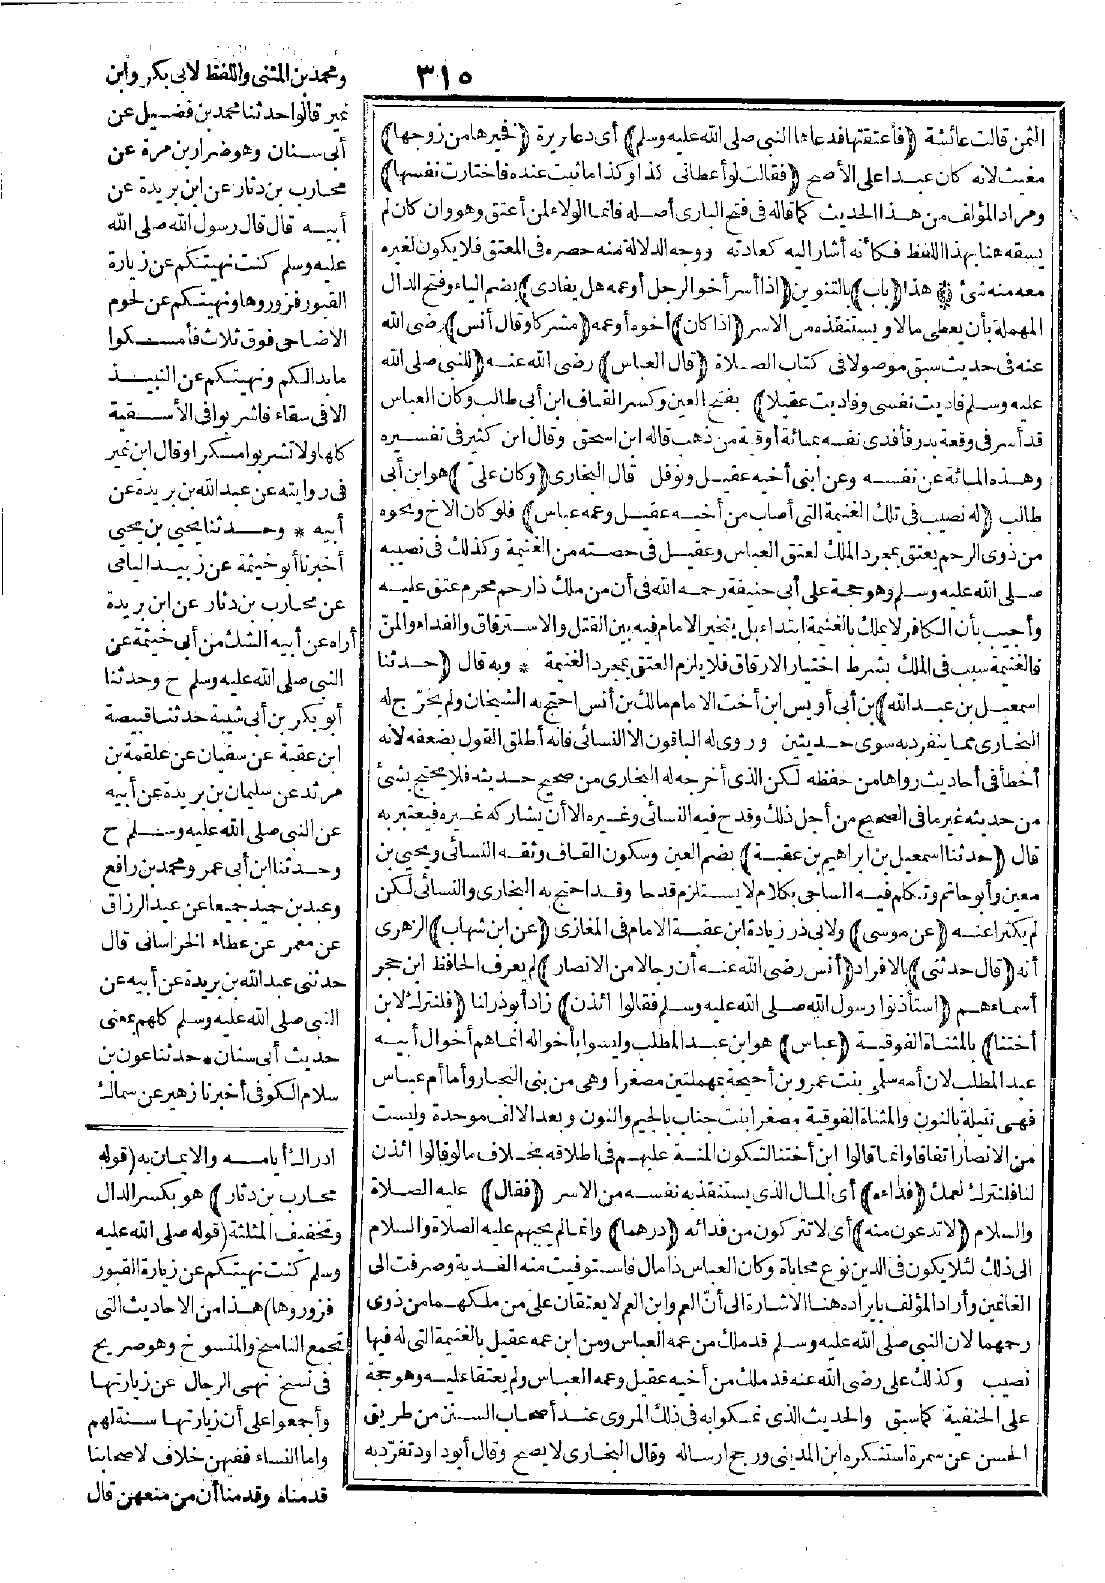 ٣١٥
الثمن قالت عائشة (فأعتقتها فدعاها النبى صلى الله عليه وسلم) أى دعا بريرة (فخيرها من زوجها)
مغيث لانه كان عبدا على الأصح (فقالت لو أعطانى كذا وكذا ما ثبت عنده فاختارت نفسها)
ومراد المؤلف من هذا الحديث كما قاله فى فتح البارى أصله فانما الولاء لمن أعتق وهو وان كان لم
يسقه هنا بهذا اللفظ فكأنه أشار اليه كعادته ووجه الدلالة منه حصره فى المعتق فلا يكون لغيره
معه منه شئ * هذا (باب) بالتنوين (اذا أسر أخو الرجل أو عمه هل يفادى) بضم الياء وفتح الدال
المهملة بأن يعطى مالا ويستنقذه من الاسر (اذا كان) أخوه أو عمه (مشركا وقال أنس) رضى الله
عنه فى حديث سبق موصولا فى كتاب الصلاة (قال العباس) رضى الله عنه (للنبى صلى الله
عليه وسلم فاديت نفسى وفاديت عقيلا) بفتح العين وكسر القاف ابن أبى طالب وكان العباس
قد أسر فى وقعة بدر فأفدى نفسه بمائة أوقية من ذهب قاله ابن اسحق وقال ابن كثير فى تفسيره
وهذه المائة عن نفسه وعن ابنى أخيه عقيل ونوفل قال البخارى (وكان على) هو ابن أبى
طالب (له نصيب فى تلك الغنيمة التى أصاب من أخيه عقيل وعمه عباس) فلو كان الاخ ونحوه
من ذوى الرحم يعتق بمجرد الملك لعتق العباس وعقيل فى حصته من الغنيمة وكذلك فى نصيبه
صلى الله عليه وسلم وهو حجة على أبى حنيفة رحمه الله فى أن من ملك ذا رحم محرم عتق عليه
وأجيب بأن الكافر لا يملك بالغنيمة ابتداء بل يتخير الامام فيه بين القتل والاسترقاق والفداء والمنّ
فالغنيمة سبب فى الملك بشرط اختيار الارقاق فلا يلزم العتق بمجرد الغنيمة * وبه قال (حدثنا
اسمعيل بن عبد الله) بن أبى أويس ابن أخت الامام مالك بن أنس احتج به الشيخان ولم يخرّج له
البخارى مما ينفرد به سوى حديثين وروى له الباقون الا النسائى فانه أطلق القول بضعفه لانه
أخطأ فى أحاديث رواها من حفظه لكن الذى أخرجه له البخارى من صحيح حديثه فلا يحتج بشئ
من حديثه غير ما فى الصحيح من أجل ذلك وقدح فيه النسائى وغيره الا أن يشاركه غيره فيعتبر به
قال (حدثنا اسمعيل بن ابراهيم بن عقبة) بضم العين وسكون القاف وثقه النسائى ويحيى بن
معين وأبو حاتم وتكلم فيه الساجى بكلام لا يستلزم قدحا وقد احتج به البخارى والنسائى لكن
لم يكثرا عنه (عن موسى) ولابى ذر زيادة ابن عقبة الامام فى المغازى (عن ابن شهاب) الزهرى
أنه (قال حدثنى) بالافراد (أنس رضى الله عنه أن رجالا من الانصار) لم يعرف الحافظ ابن حجر
أسماءهم (استأذنوا رسول الله صلى الله عليه وسلم فقالوا ائذن) زاد أبو ذر لنا (فلنترك لابن
أختنا) بالمثناة الفوقية (عباس) هو ابن عبد المطلب وليسوا بأخواله انما هم أخوال أبيه
عبد المطلب لان أمه سلمى بنت عمرو بن أحيحة بمهملتين مصغرا وهى من بنى النجار وأما أم عباس
فهى نتيلة بالنون والمثناة الفوقية مصغرا بنت جناب بالجيم والنون وبعد الالف موحدة وليست
من الانصار اتفاقا وانما قالوا ابن أختنا لتكون المنة عليهم فى اطلاقه بخلاف مالو قالوا ائذن
لنا فلنترك لعمك (فداءه) أى المال الذى يستنقذ به نفسه من الاسر (فقال) عليه الصلاة
والسلام (لا تدعون منه) أى لا تتركون من فدائه (درهما) وانما لم يجبهم عليه الصلاة والسلام
الى ذلك لئلا يكون فى الدين نوع محاباة وكان العباس ذا مال فاستوفيت منه الفدية وصرفت الى
الغانمين وأراد المؤلف بايراده هنا الاشارة الى أنّ العم وابن العم لا يعتقان على من ملكهما من ذوى
رحمهما لان النبى صلى الله عليه وسلم قد ملك من عمه العباس ومن ابن عمه عقيل بالغنيمة التى له فيها
نصيب وكذلك على رضى الله عنه قد ملك من أخيه عقيل وعمه العباس ولم يعتقا عليه وهو حجة
على الحنفية كما سبق والحديث الذى تمسكوا به فى ذلك المروى عند أصحاب السنن من طريق
الحسن عن سمرة استنكره ابن المدينى ورجح ارساله وقال البخارى لا يصح وقال أبو داود تفرد به
ومحمد بن المثنى واللفظ لابى بكر وابن
نمير قالوا حدثنا محمد بن فضيل عن
أبى سنان وهو ضرار بن مرة عن
محارب بن دثار عن ابن بريدة عن
أبيه قال قال رسول الله صلى الله
عليه وسلم كنت نهيتكم عن زيارة
القبور فزوروها ونهيتكم عن لحوم
الاضاحى فوق ثلاث فأمسكوا
ما بدا لكم ونهيتكم عن النبيذ
الا فى سقاء فاشربوا فى الأسقية
كلها ولا تشربوا مسكرا وقال ابن نمير
فى روايته عن عبد الله بن بريدة عن
أبيه * وحدثنا يحيى بن يحيى
أخبرنا أبو خيثمة عن زبيد اليامى
عن محارب بن دثار عن ابن بريدة
أراه عن أبيه الشك من أبى خيثمة عن
النبى صلى الله عليه وسلم ح وحدثنا
أبو بكر بن أبى شيبة حدثنا قبيصة
ابن عقبة عن سفيان عن علقمة بن
مرثد عن سلمان بن بريدة عن أبيه
عن النبى صلى الله عليه وسلم ح
وحدثنا ابن أبى عمر ومحمد بن رافع
وعبد بن حميد جميعا عن عبد الرزاق
عن معمر عن عطاء الخراسانى قال
حدثنى عبد الله بن بريدة عن أبيه عن
النبى صلى الله عليه وسلم كلهم بمعنى
حديث أبى سنان * حدثنا عون بن
سلام الكوفى أخبرنا زهير عن سماك
ادراك أيامه والايمان به (قوله
محارب بن دثار) هو بكسر الدال
وتخفيف المثلثة (قوله صلى الله عليه
وسلم كنت نهيتكم عن زيارة القبور
فزوروها) هذا من الاحاديث التى
تجمع الناسخ والمنسوخ وهو صريح
فى نسخ نهى الرجال عن زيارتها
وأجمعوا على أن زيارتها سنة لهم
واما النساء ففيهن خلاف لاصحابنا
قدمناه وقدمنا أن من منعهن قال